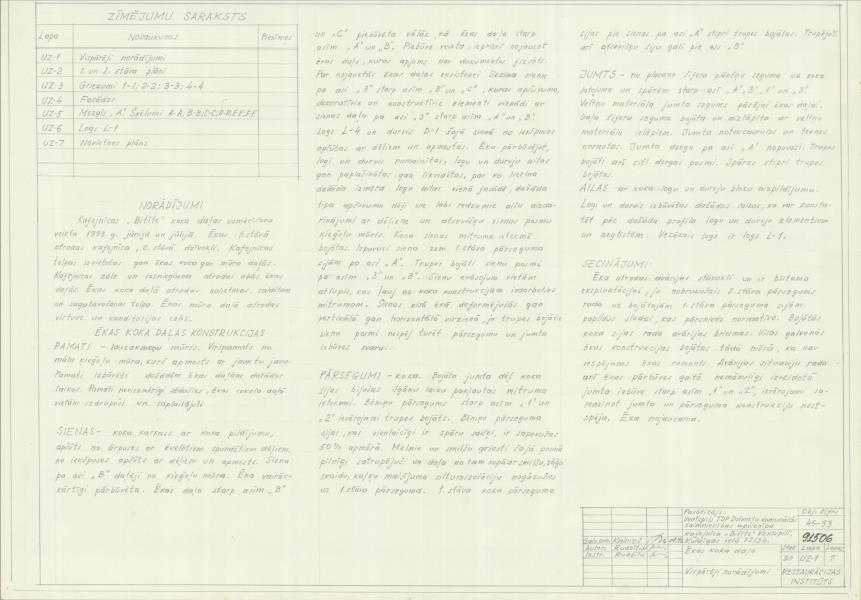 ZĪMĒJUMU SARAKSTS
Lapa Nosaukums Piezīmes
UZ-1 Vispārēji norādījumi
UZ-2 1. un 2. stāva plāni
UZ-3 Griezumi 1-1; 2-2; 3-3; 4-4
UZ-4 Fasādes
UZ-5 Mezgls "A". Šķēlumi A-A; B-B; C-C; D-D; E-E; F-F
UZ-6 Logs L-1
UZ-7 Novietnes plāns
NORĀDĪJUMI
Kafejnīcas "Bitīte" koka daļas uzmērīšana
veikta 1993. g. jūnijā un jūlijā. Ēkas 1. stāvā
atrodas kafejnīca, 2. stāvā dzīvokļi. Kafejnīcas
telpas izvietotas gan ēkas koka gan mūra daļās.
Kafejnīcas zāle un izsniegšana atrodas abās ēkas
daļās. Ēkas koka daļā atrodas noliktavas, saldētava
un sagatavošanas telpa. Ēkas mūra daļā atrodas
virtuve un konditorejas cehs.
ĒKAS KOKA DAĻAS KONSTRUKCIJAS
PAMATI - laukakmeņu mūris. Virspamats no
māla ķieģeļu mūra, kurš apmests ar javu.
Pamati izbūvēti dažādām ēkas daļām dažādos
laikos. Pamati nevienmērīgi sēdušies, ēkas cokola daļā
vietām izdrupuši un saplaisājuši.
SIENAS - koka karkass ar koka pildījumu,
apšūts no ārpuses ar ēvelētiem spundētiem dēļiem,
no iekšpuses apšūts ar dēļiem un apmests. Siena
pa asi "B" daļēji no ķieģeļu mūra. Ēka vairāk-
kārtīgi pārbūvēta. Ēkas daļa starp asīm "B"
un "C" piebūvēta vēlāk, kā ēkas daļa starp
asīm "A" un "B". Piebūve veikta, iepriekš nojaucot
ēkas daļu, kuras apjoms nav dokumentos fiksēts.
Par nojauktās ēkas daļas eksistenci liecina siena
pa asi "3" starp asīm "B" un "C", kuras apšuvums,
dekoratīvie un konstruktīvie elementi vienādi ar
sienas daļu pa asi "3" starp asīm "A" un "B".
Logs L-4 un durvis D-1 šajā sienā no iekšpuses
apšūtas ar dēļiem un apmestas. Ēku pārbūvējot,
logi un durvis nomainītas, logu un durvju ailas
gan paplašinātas, gan likvidētas, par ko liecina
dažāda izmēra logu ailas vienā fasādē, dažāda
tipa apšuvuma dēļi un labi redzamie ailu aizda-
rinājumi ar dēļiem un atsevišķu sienas posmu
ķieģeļu mūris. Koka sienas mitruma ietekmē
bojātas. Izpuvusi siena zem 1. stāva pārseguma
sijām pa asi "A". Trupes bojāti sienu posmi
pa asīm "3" un "B". Sienu krāsojums vietām
atlupis, kas ļauj uz koka konstrukcijām iedarboties
mitrumam. Sienas visā ēkā deformējušās gan
vertikālā gan horizontālā virzienā, jo trupes bojātie
sienu posmi nespēj turēt pārsegumu un jumta
izbūves svaru.
PĀRSEGUMI - koka. Bojāta jumta dēļ koka
sijas bijušas ilgāku laiku pakļautas mitruma
ietekmei. Bēniņu pārsegums starp asīm "1" un
"2" ievērojami trupes bojāts. Bēniņu pārseguma
sijas, kas vienlaicīgi ir spāru savilces, ir sapuvušas
50% apmērā. Melnie un smilšu griesti šajā posmā
pilnīgi satrupējuši un daļa no tam kopā ar smilšu, zāģu
skaidu, kaļķu maisījuma siltumizolāciju nogāzušies
uz 1. stāva pārseguma. 1. stāva koka pārseguma
sijas pie sienas pa asi "A" stipri trupes bojātas. Trupējuši
arī atsevišķu siju gali pie ass "B".
JUMTS - no plakano šīfera plākšņu seguma uz koka
latojuma un spārēm starp asīm "A", "B", "1" un "3".
Veltņu materiāla jumta segums pārējai ēkas daļai.
Daļa šīfera seguma bojāta un aizlāpīta ar veltņu
materiāla ielāpiem. Jumta notekcaurules un teknes
norautas. Jumta dzega pa asi "A" nopuvusi. Trupes
bojāti arī citi dzegas posmi. Spāres stipri trupes
bojātas.
AILAS ar koka logu un durvju bloku aizpildījumu.
Logi un durvis izbūvētas dažādos laikos, ko var konsta-
tēt pēc dažāda profila logu un durvju elementiem
un apšuvumiem. Vecākais logs ir logs L-1.
SECINĀJUMI:
Ēka atrodas avārijas stāvoklī un ir bīstama
ekspluatācijai, jo nobrukušais 2. stāva pārsegums
rada uz bojātajām 1. stāva pārseguma sijām
papildus slodzi, kas pārsniedz normatīvo. Bojātās
koka sijas rada avārijas briesmas. Visas galvenās
ēkas konstrukcijas bojātas tādā mērā, ka nav
iespējams ēkas remonts. Avārijas situāciju rada
arī ēkas pārbūves gaitā nemākulīgi izveidotā
jumta izbūve starp asīm "1" un "2", ievērojami sa-
mazinot jumta un pārseguma konstrukciju nest-
spēju. Ēka nojaucama.
Pasūtītājs:
Ventspils TDP Dzīvokļu komunālās
saimniecības apvienība
Obj. šifrs
45-93
Kafejnīca "Bitīte" Ventspilī,
Kuldīgas ielā
91506
Ēkas koka daļa
Stad. Lapa Lapas
UZ-1 7
Vispārēji norādījumi
RESTAURĀCIJAS
INSTITŪTS